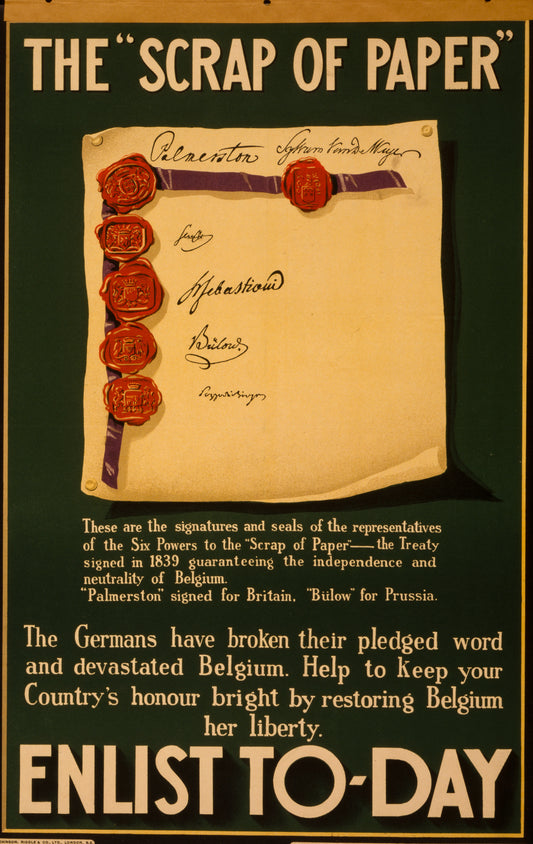 THE "SCRAP OF PAPER"
Palmerston Sylvain Van de Weyer
Senfft
H Sebastiani
Bülow.
These are the signatures and seals of the representatives
of the Six Powers to the "Scrap of Paper"—the Treaty
signed in 1839 guaranteeing the independence and
neutrality of Belgium.
"Palmerston" signed for Britain, "Bülow" for Prussia.
The Germans have broken their pledged word
and devastated Belgium. Help to keep your
Country's honour bright by restoring Belgium
her liberty.
ENLIST TO-DAY
RIDDLE & CO., LTD., LONDON, S.E.